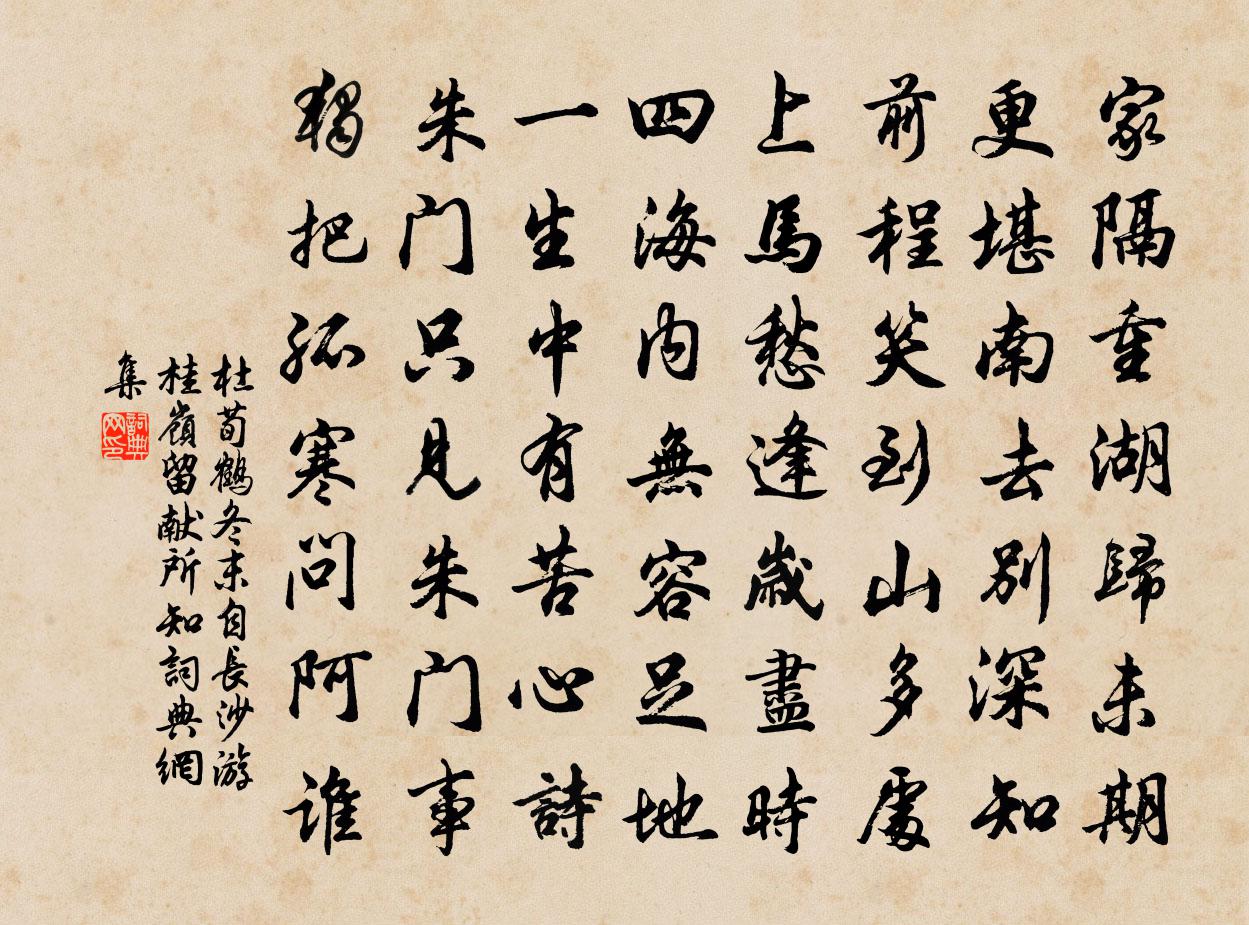 家隔重湖歸未期
更堪南去別深知
前程笑到山多處
上馬愁逢歲盡時
四海內無容足地
一生中有苦心詩
朱门只見朱门事
獨把孤寒问阿谁
杜荀鶴冬末自長沙游
桂嶺留献所知詞典網
集
詞典
网印